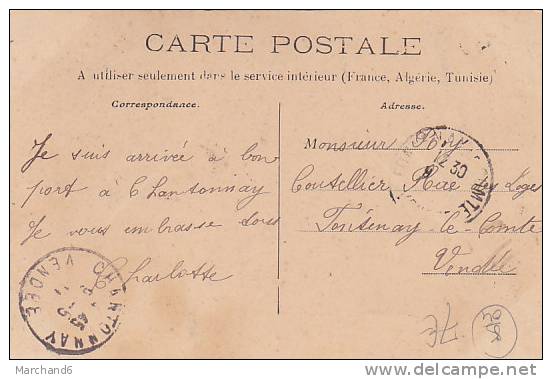 CARTE POSTALE
A utiliser seulement dans le service intérieur (France, Algérie, Tunisie)
Correspondance.
Adresse.
Je suis arrivée à bon
port à Chantonnay
Je vous embrasse tous
Charlotte
Monsieur Roy
Coutellier Rue des Loges
Fontenay-le-Comte
Vendée
CHANTONNAY
VENDÉE
Marchand6
www.delcampe.net